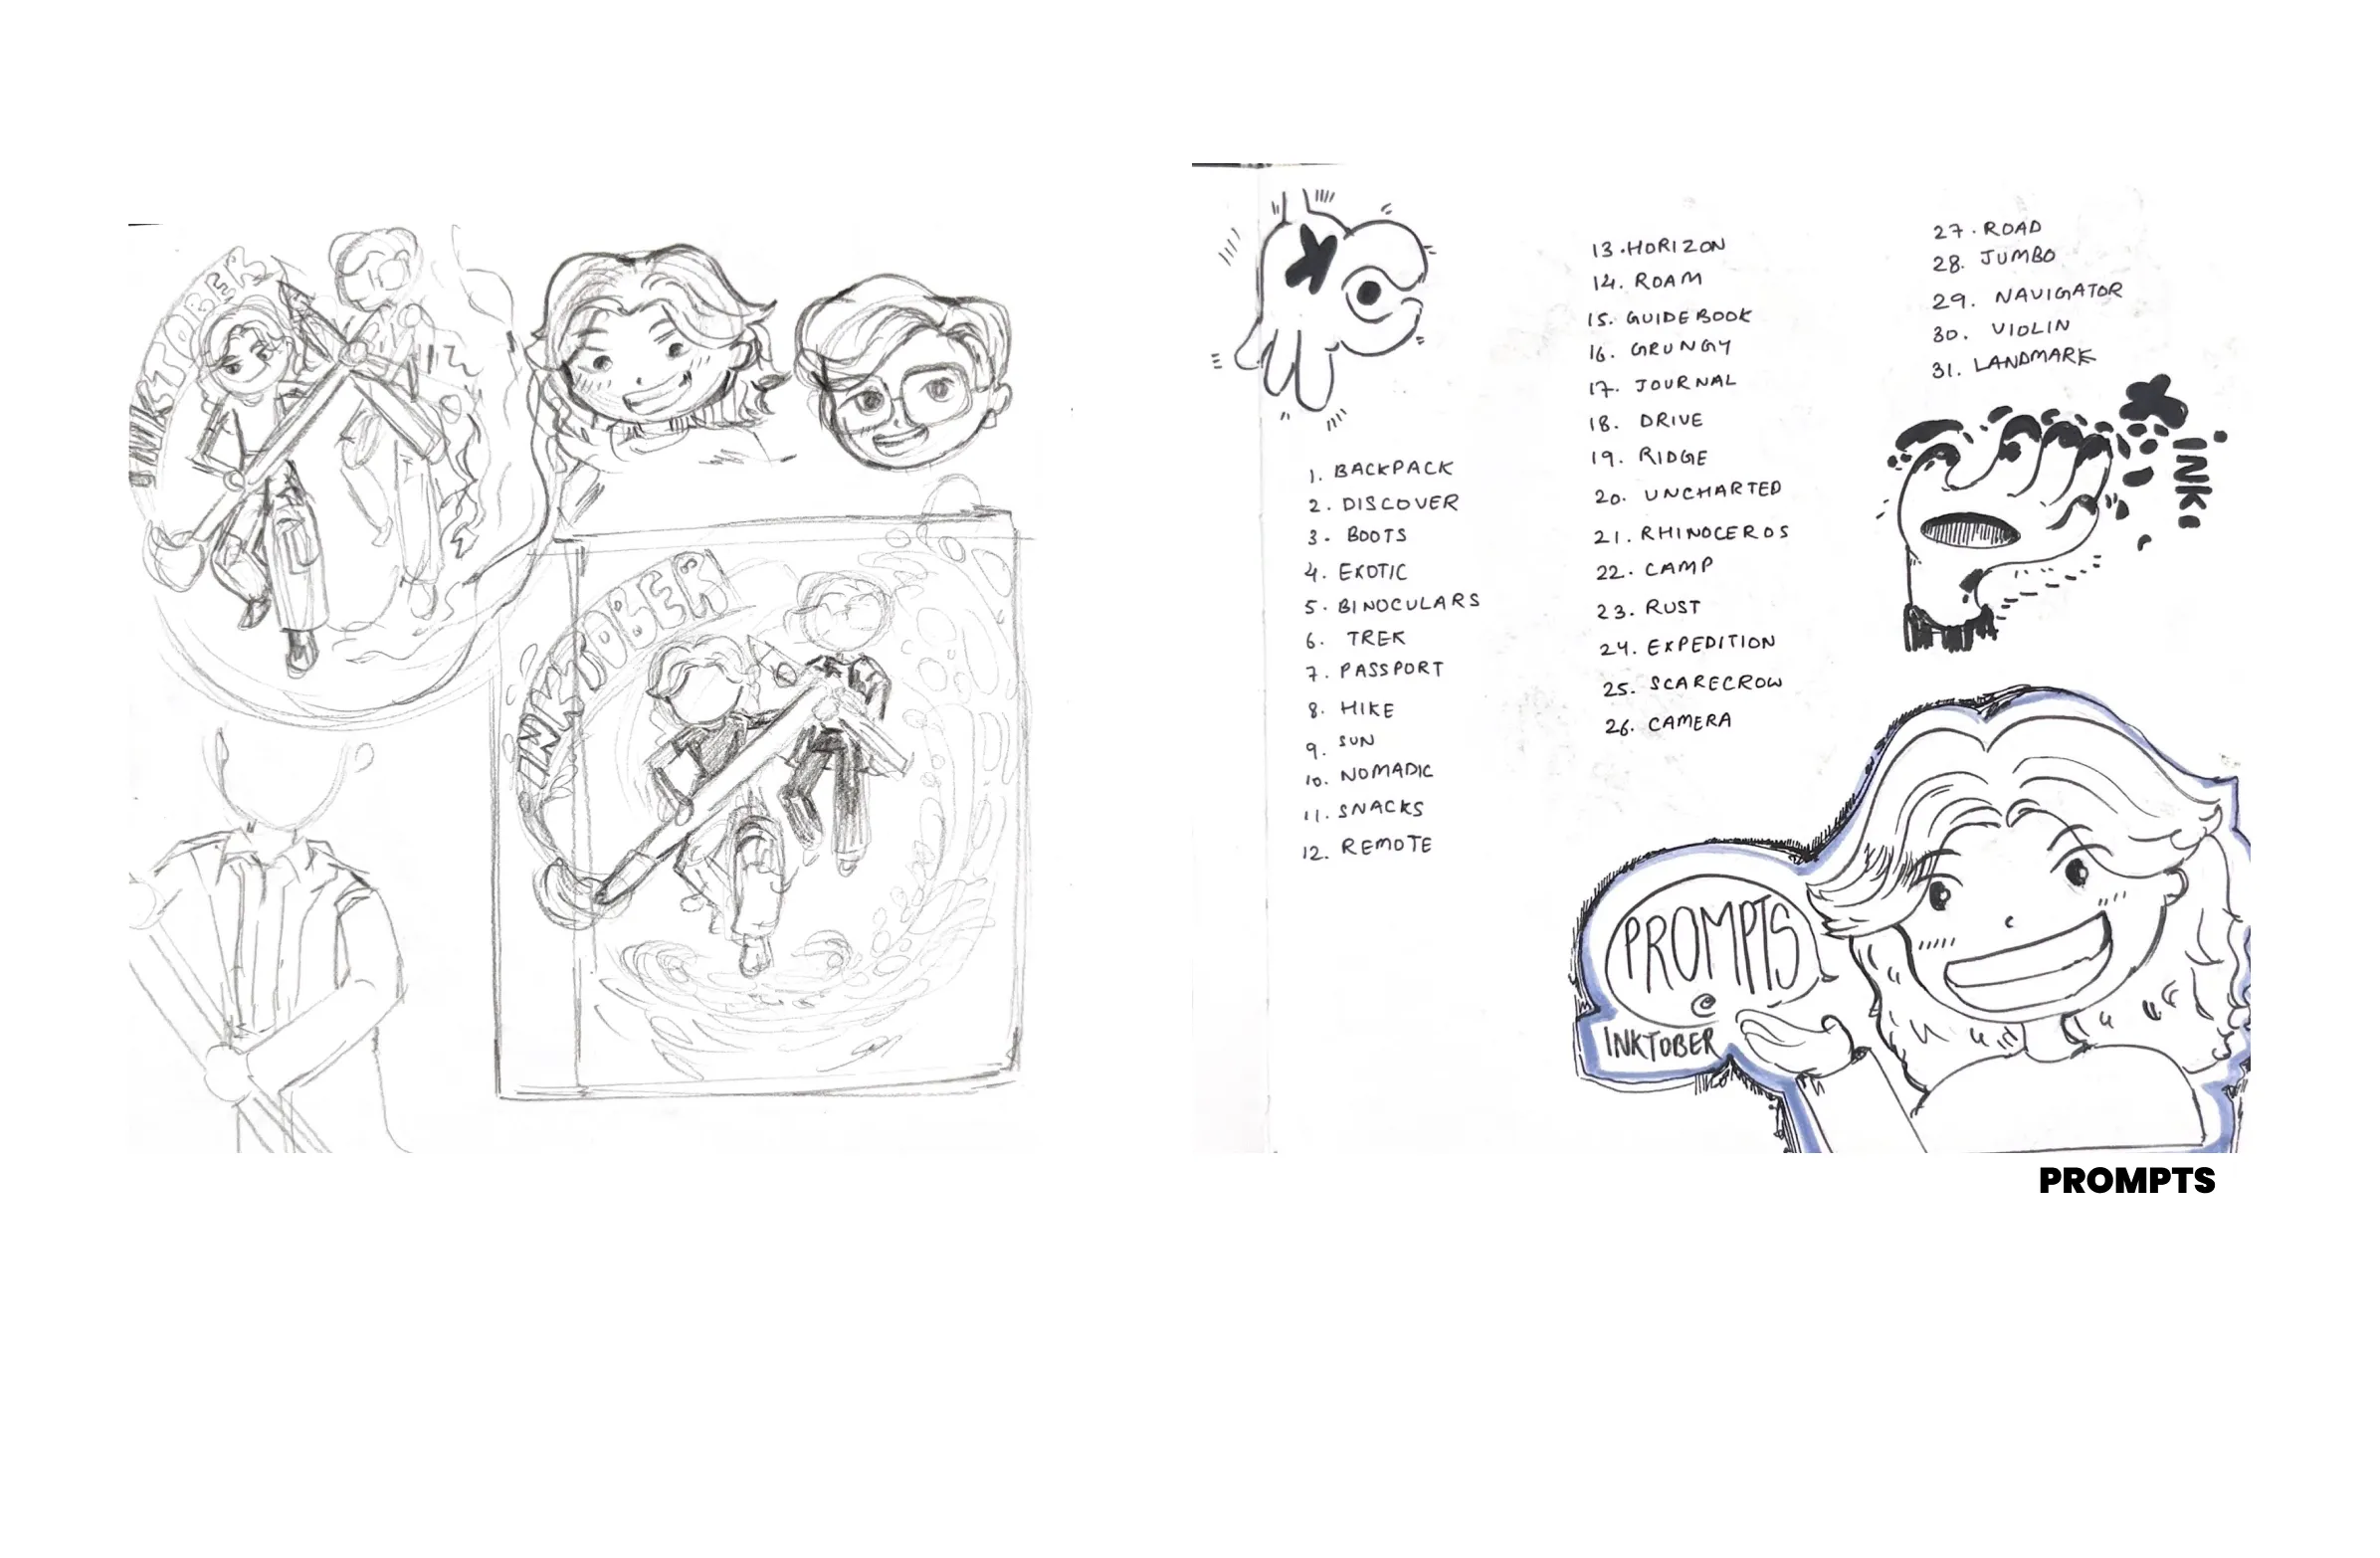 INKTOBER
INKTOBER
1. BACKPACK
2. DISCOVER
3. BOOTS
4. EXOTIC
5. BINOCULARS
6. TREK
7. PASSPORT
8. HIKE
9. SUN
10. NOMADIC
11. SNACKS
12. REMOTE
13. HORIZON
14. ROAM
15. GUIDEBOOK
16. GRUNGY
17. JOURNAL
18. DRIVE
19. RIDGE
20. UNCHARTED
21. RHINOCEROS
22. CAMP
23. RUST
24. EXPEDITION
25. SCARECROW
26. CAMERA
27. ROAD
28. JUMBO
29. NAVIGATOR
30. VIOLIN
31. LANDMARK
INK
PROMPTS
@
INKTOBER
PROMPTS